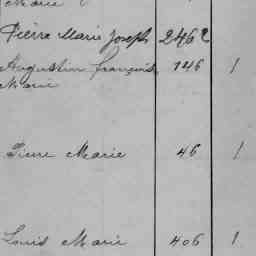 Marie
Pierre Marie Joseph 2462
Augustin françois 746 1
Marie
Pierre Marie 46 1
Louis Marie 406 1